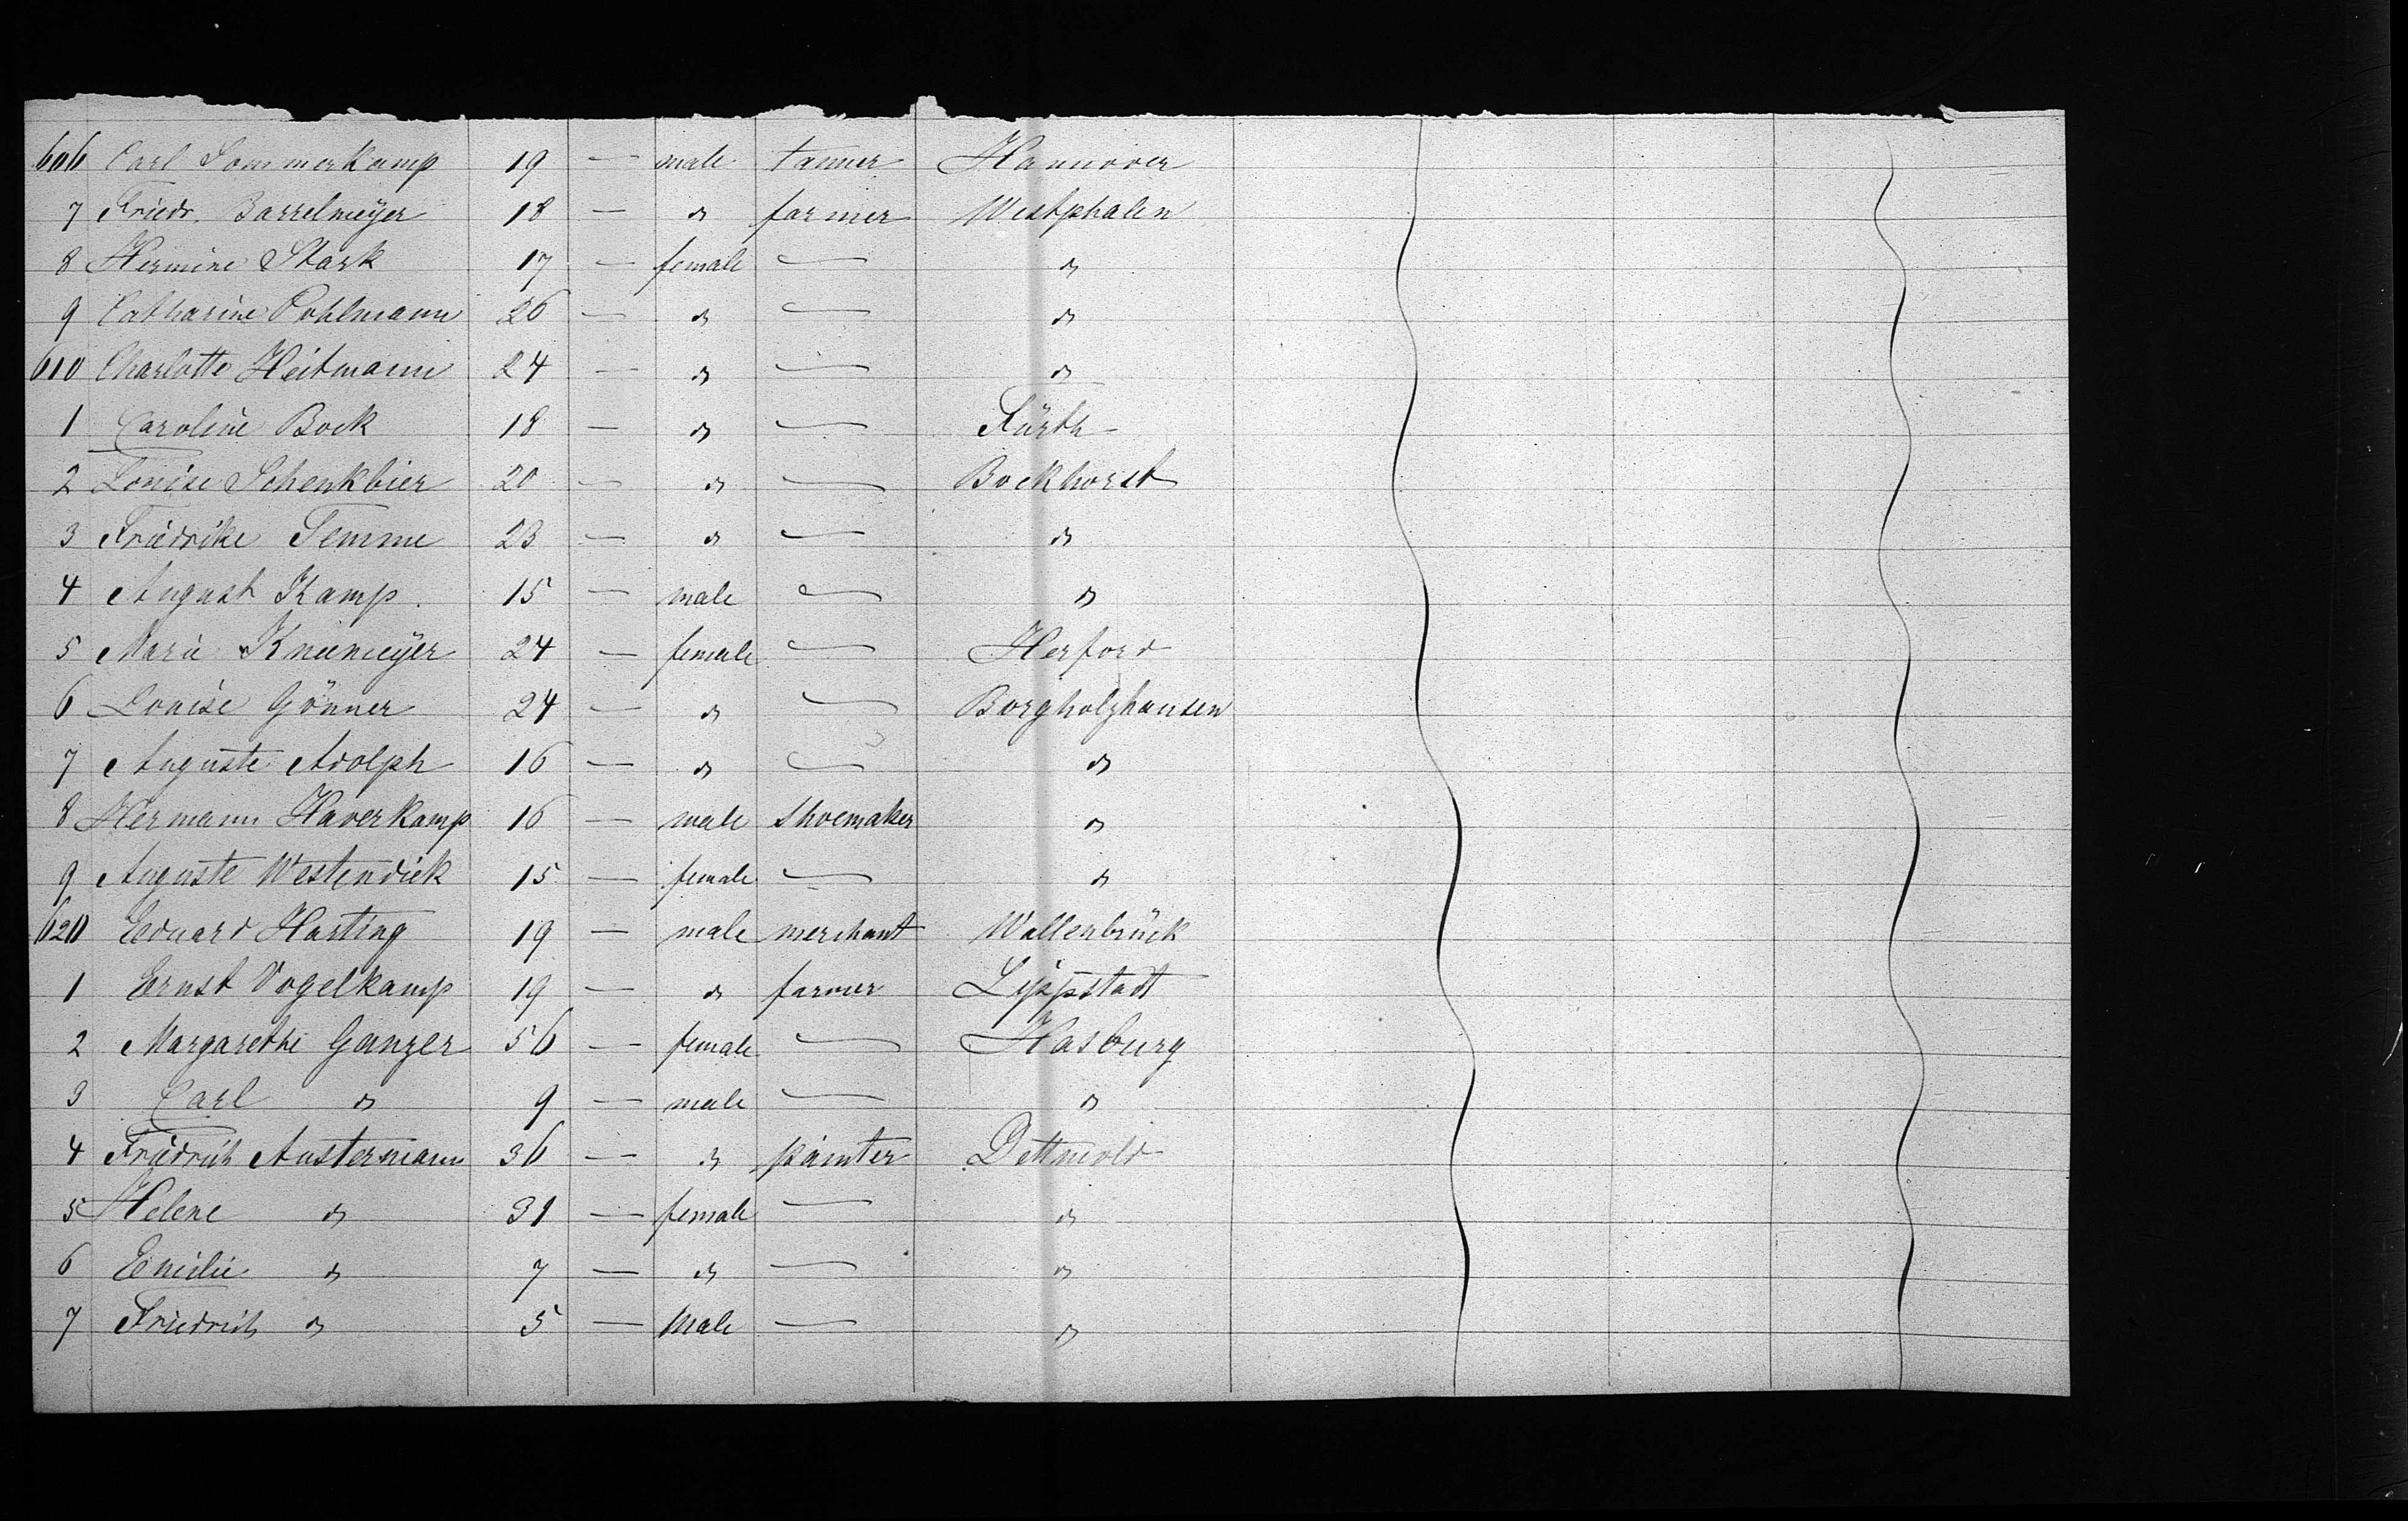 606 Carl Sommerkamp 19 — male tanner Hannover
7 Friedr. Barrelmeÿer 18 — " farmer Westphalen
8 Hermine Stark 17 — female — "
9 Catharine Pohlmann 26 — " — "
610 Charlotte Heitmann 24 — " — "
1 Caroline Bock 18 — " — Fürth
2 Louise Schenkbier 20 — " — Bockhorst
3 Friedrike Temme 23 — " — "
4 August Kamp. 15 — male — "
5 Marie Kniemeÿer 24 — female — Herford
6 Louise Gönner 24 — " — Borgholzhausen
7 Auguste Adolph 16 — " — "
8 Hermann Haverkamp 16 — male shoemaker "
9 Auguste Westendiek 15 — female — "
620 Eduard Hasting 19 — male merchant Wallenbrück
1 Ernst Vogelkamp 19 — " farmer Lippstadt
2 Margarethe Ganzer 56 — female — Hasburg
3 Carl " 9 — male — "
4 Friedrich Austermann 36 — " painter Dettmold
5 Helene " 31 — female — "
6 Emilie " 7 — " — "
7 Friedrich " 5 — male — "